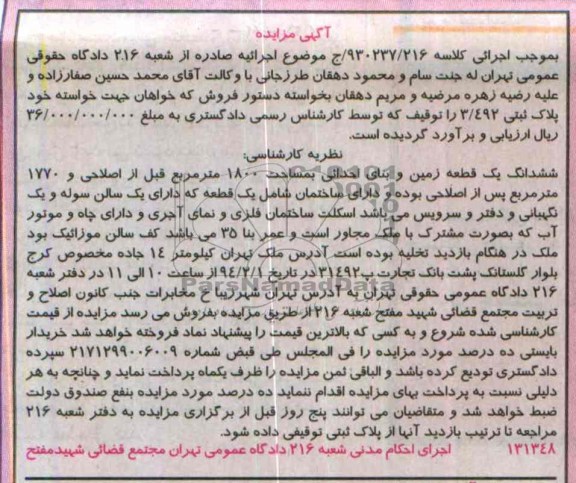 آگهی مزایده
بموجب اجرائی کلاسه ۹۳۰۲۳۷/۲۱۶/ج موضوع اجرائیه صادره از شعبه ۲۱۶ دادگاه حقوقی
عمومی تهران له جنت سام و محمود دهقان طرزجانی با وکالت آقای محمد حسین صفارزاده و
علیه رضیه زهره مرضیه و مریم دهقان بخواسته دستور فروش که خواهان جهت خواسته خود
پلاک ثبتی ۳/٤۹۲ را توقیف که توسط کارشناس رسمی دادگستری به مبلغ ۳۶/۰۰۰/۰۰۰/۰۰۰
ریال ارزیابی و برآورد گردیده است.
نظریه کارشناسی:
ششدانگ یک قطعه زمین و بنای احداثی بمساحت ۱۸۰۰ مترمربع قبل از اصلاحی و ۱۷۷۰
مترمربع پس از اصلاحی بوده و دارای ساختمان شامل یک قطعه که دارای یک سالن سوله و یک
نگهبانی و دفتر و سرویس می باشد اسکلت ساختمان فلزی و نمای آجری و دارای چاه و موتور
آب که بصورت مشترک با ملک مجاور است و عمر بنا ۳۵ می باشد کف سالن موزائیک بود
ملک در هنگام بازدید تخلیه بوده است آدرس ملک تهران کیلومتر ۱٤ جاده مخصوص کرج
بلوار گلستانک پشت بانک تجارت پ۳۱٤۹۲ در تاریخ ۹٤/۲/۱ از ساعت ۱۰ الی ۱۱ در دفتر شعبه
۲۱۶ دادگاه عمومی حقوقی تهران به آدرس تهران شهرزیبا خ مخابرات جنب کانون اصلاح و
تربیت مجتمع قضائی شهید مفتح شعبه ۲۱۶ از طریق مزایده بفروش می رسد مزایده از قیمت
کارشناسی شده شروع و به کسی که بالاترین قیمت را پیشنهاد نماد فروخته خواهد شد خریدار
بایستی ده درصد مورد مزایده را فی المجلس طی قبض شماره ۲۱۷۱۲۹۹۰۰۶۰۰۹ سپرده
دادگستری تودیع کرده باشد و الباقی ثمن مزایده را ظرف یکماه پرداخت نماید و چنانچه به هر
دلیلی نسبت به پرداخت بهای مزایده اقدام ننماید ده درصد مورد مزایده بنفع صندوق دولت
ضبط خواهد شد و متقاضیان می توانند پنج روز قبل از برگزاری مزایده به دفتر شعبه ۲۱۶
مراجعه تا ترتیب بازدید آنها از پلاک ثبتی توقیفی داده شود.
۱۳۱۳٤۸ اجرای احکام مدنی شعبه ۲۱۶ دادگاه عمومی تهران مجتمع قضائی شهیدمفتح
ParsNamadData